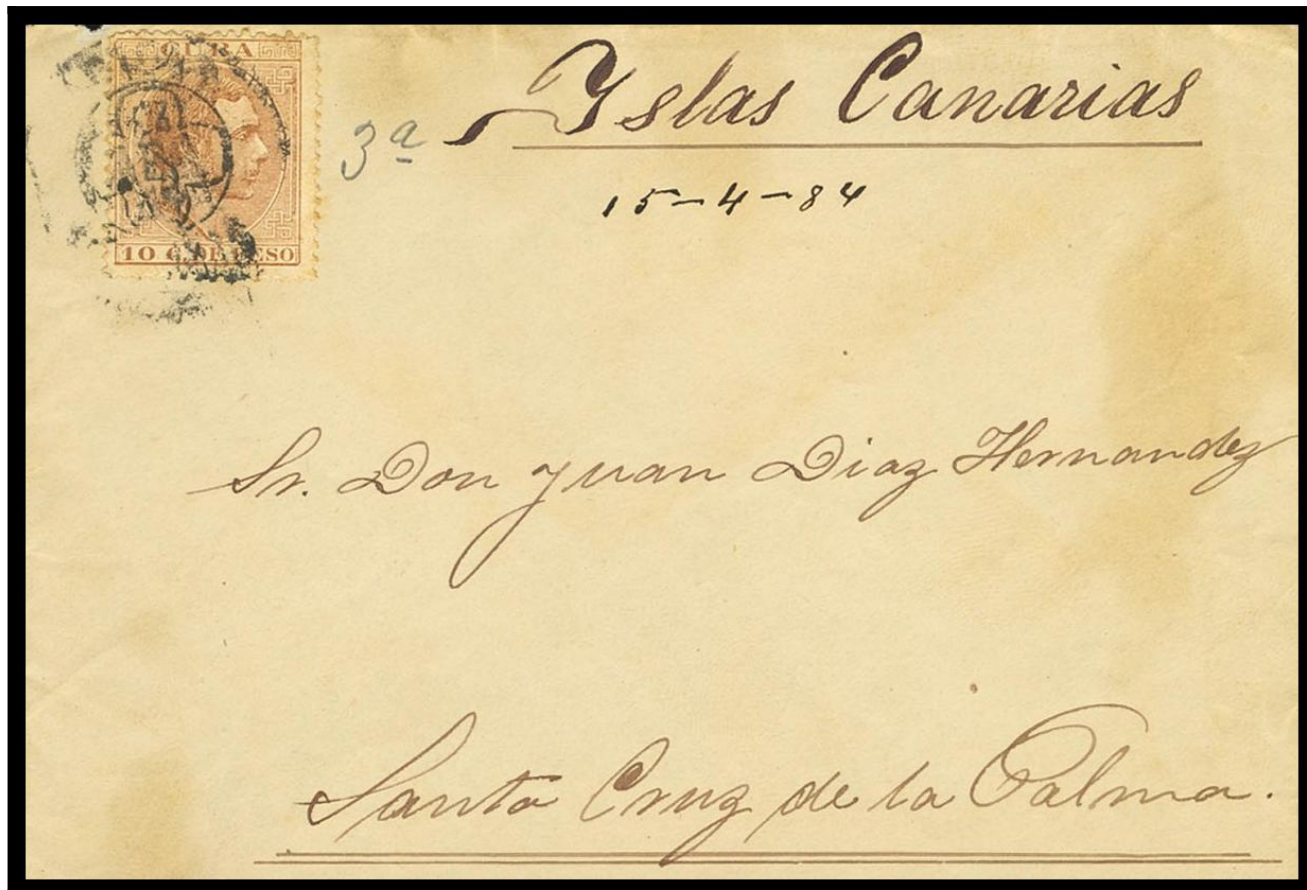 CUBA
10 C. DE PESO
3ª
Yslas Canarias
15-4-84
Sr. Don Juan Diaz Hernandez
Santa Cruz de la Palma.